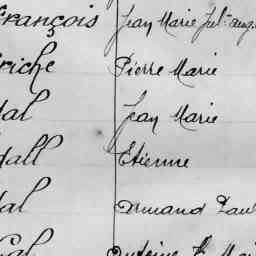 François Jean Marie Jul. aug
riche Pierre Marie
dal Jean Marie
dall Etienne
dal Armand Paul
Antoine F. Mar